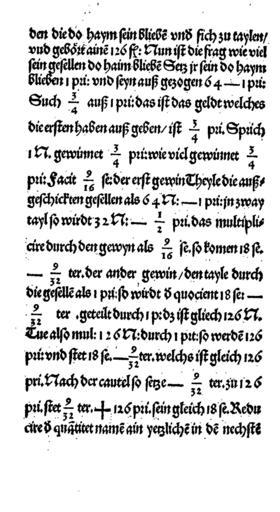 den die do haym sein bliebẽ vnd sich zu taylen/
vnd gehört ainẽ 126 fl: Nun ist die frag wie viel
sein gesellen do haim bliebẽ Setz jr sein do haym
blieben 1 pri: vnd seyn auß gezogen 64 — 1 pri:
Such 3/4 auß 1 pri: das ist das geldt welches
die ersten haben auß geben/ ist 3/4 pri. Sprich
1 N. gewinnet 3/4 pri: wie viel gewinnet 3/4
pri: Facit 9/16 se: der erst gewin Theyle die auß-
geschickten gesellen als 64 N: — 1 pri: in zway
tayl so wirdt 32 N: — 1/2 pri. das multipli-
cire durch den gewyn als 9/16 se. so komen 18 se.
— 9/32 ter. der ander gewin/ den tayle durch
die gesellẽ als 1 pri: so wirdt d̃ quocient 18 se: —
9/32 ter .geteilt durch 1 pr: dz ist gliech 126 N.
Tue also mul: 126 N: durch 1 pri: so werdẽ 126
pri: vnd stet 18 se. — 9/32 ter. welchs ist gleich 126
pri. Nach der cautel so setze — 9/32 ter. zu 126
pri. stet 9/32 ter. + 126 pri. sein gleich 18 se. Redu
cire d̃ quãtitet namẽ ain yetzlichẽ in dẽ nechstẽ